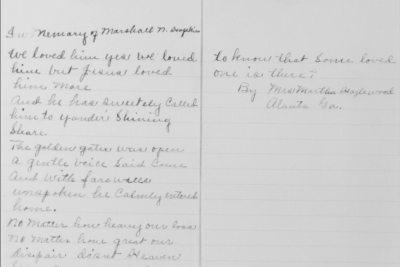 In Nemary of Marshall N. Dropkin
We loved him yes we loved
him but Jesus loved
him More
And he has sweetely Called
him to yonder Shining
Shore
The golden gates was open
a gentle voice Said Come
And With farewells
unspoken he Calmly entered
home.
No Matter how heavy our loss
No Matter how great our
dispair dosnt Heaven
to know that Some loved
one is there?
By Mrs Martha Hazlewood
Ga.